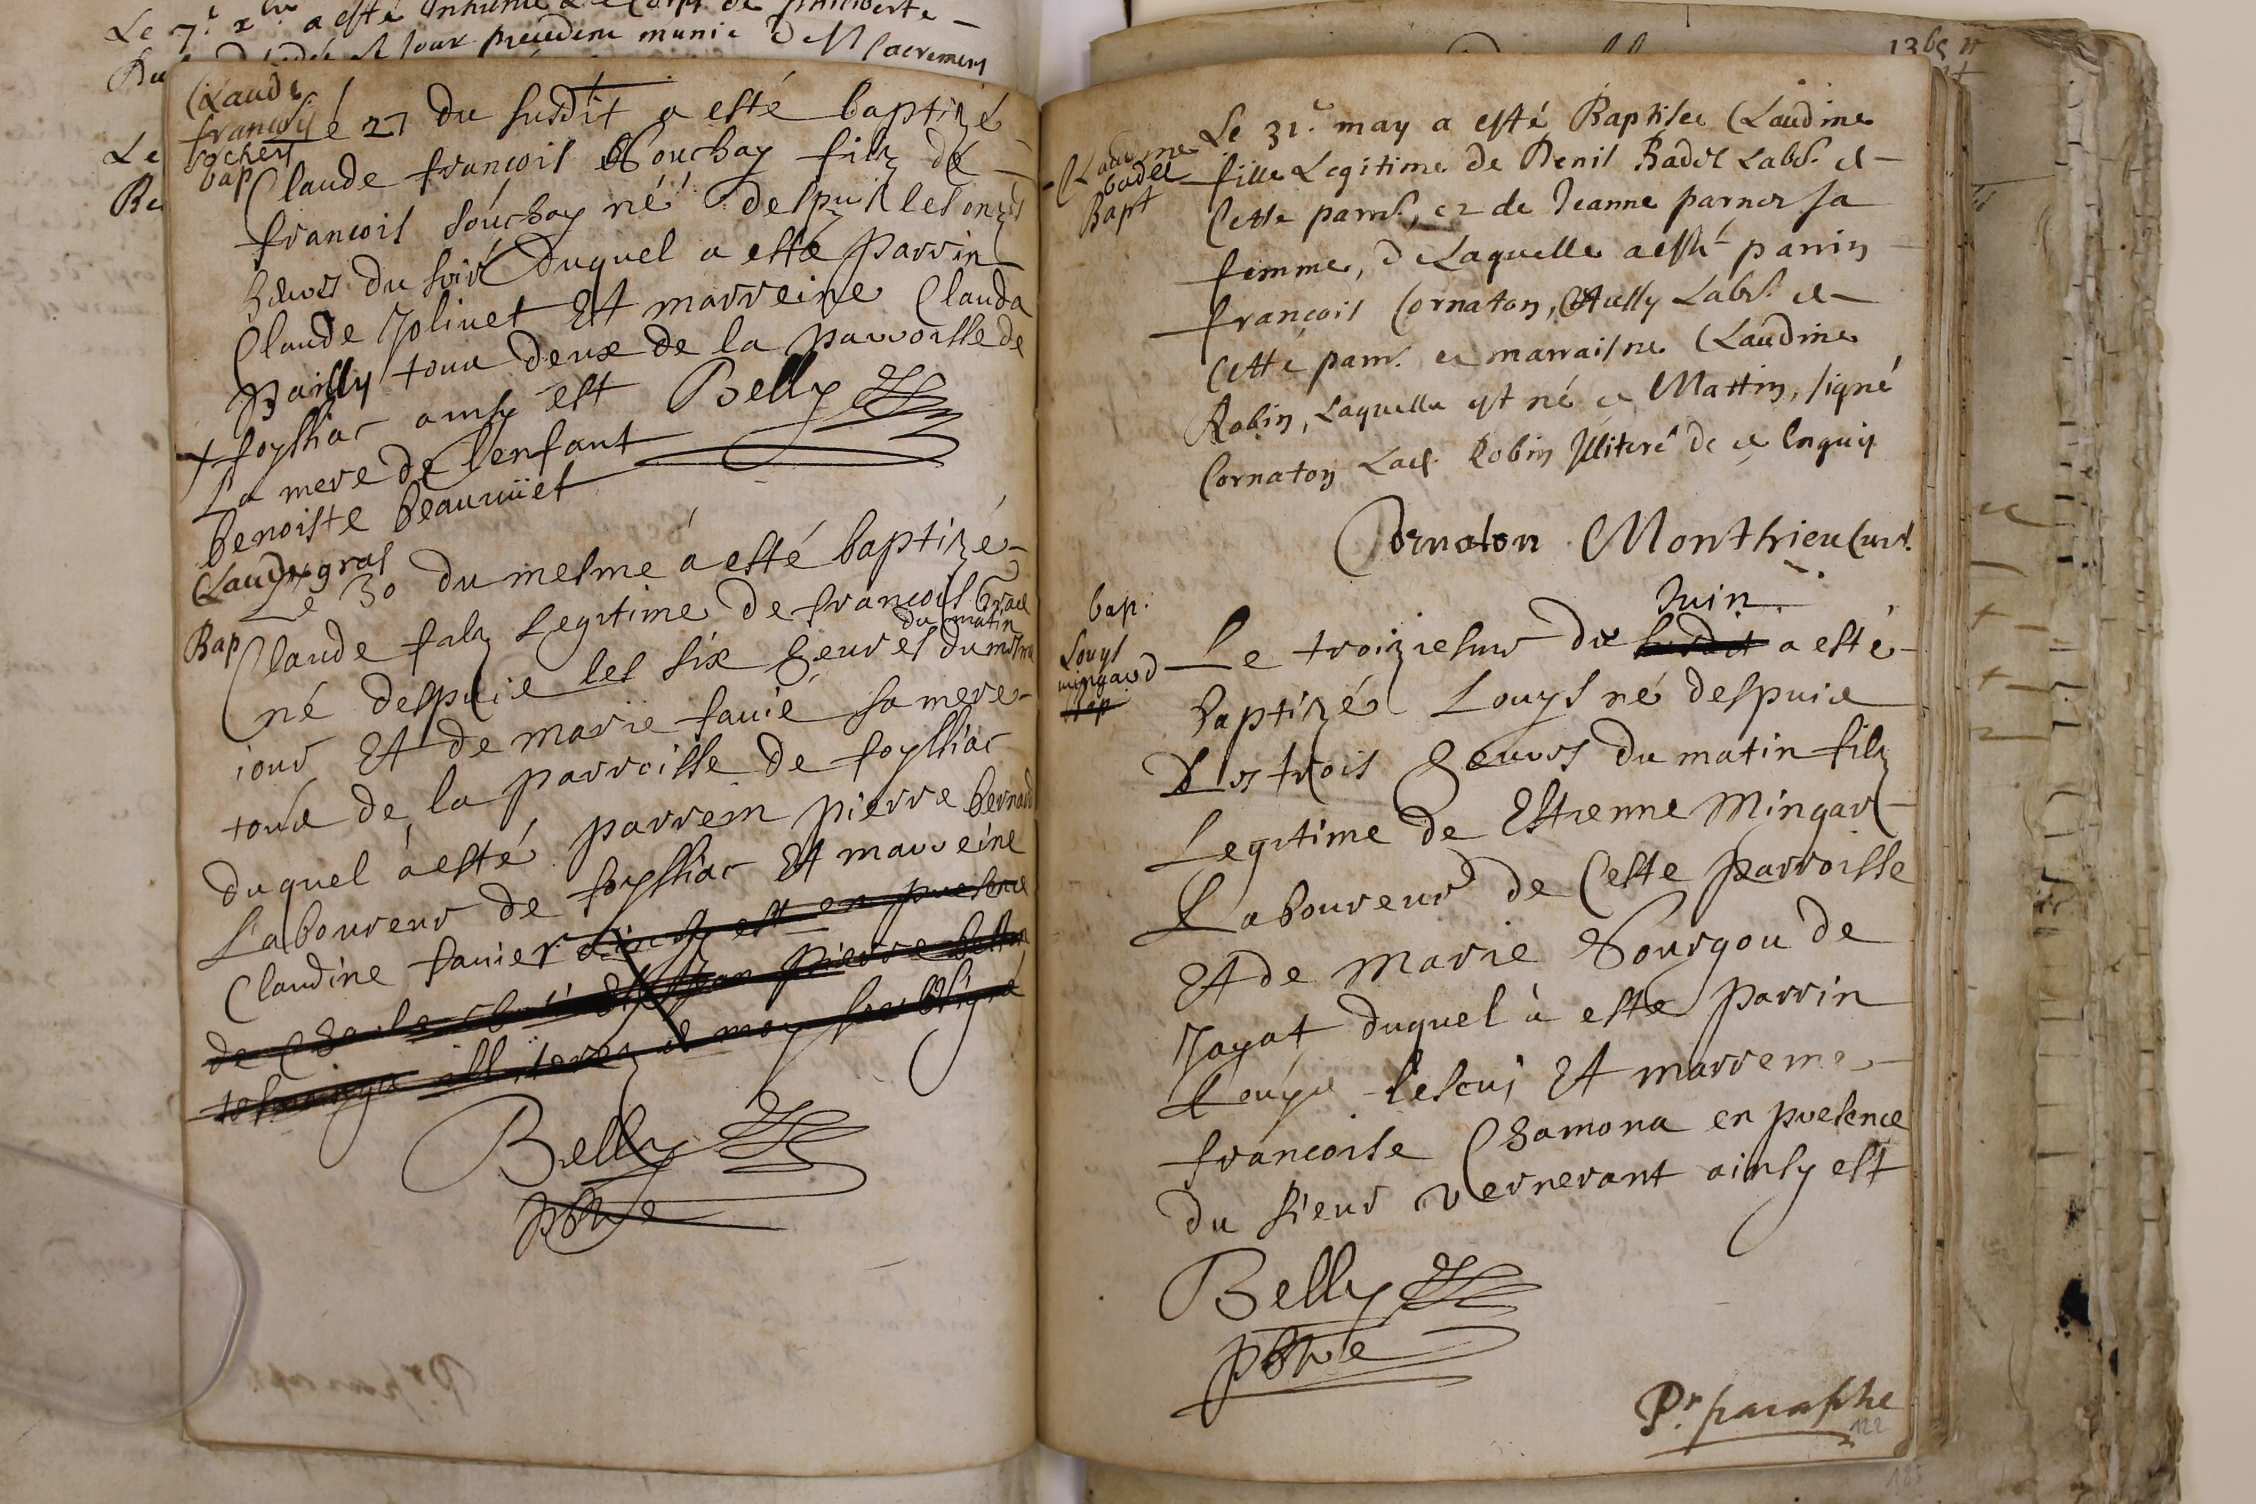 Le 7.e xbre a esté Inhumé
jour precedent munie des sacremens
Le
Claude
françois
bochey
bap
Le 27 du susdit a esté baptizé
Claude françois Bouchay filz de
francois bouchay né despuis les onze
heures du soir duquel a esté parrin
Claude Jolivet Et marreine Clauda
Pailly tous deux de la parroisse de
foyssiac ainsy est Belly
+ La mere de l'enfant
benoiste beauvuiet
Claude gras
Bap
Le 30 du mesme a esté baptizé
Claude filz Legitime de francois Gras
du matin
né despuis les six heures du mesme
iour Et de marie favié sa mere
tous de la parroisse de foyssiac
duquel a esté parrein pierre bernard
Laboureur de foyssiac Et marreine
Claudine favier ainsy est en presence
de Charle Et Jean pierre
illiterez et moy soubsigné
Belly
pbtre
Claudine
badel
Bapt
Le 31.e may a esté Baptisée Claudine
fille Legitime de Denis Badel Labr. de
Cette parr., et de Jeanne parnes sa
femme, de Laquelle a esté parrin
françois Cornaton, Aussy Labr. de
Cette parr. et marraisne Claudine
Robin, Laquelle est né ce Mattin, signé
Cornaton Lad. Robin Illiteré de ce Enquis
Cornaton Monthieu Curé.
bap.
Louys
mingard
bap
Juin
Le troiziesme du susdit a esté
baptizé Louys né despuis
Les trois heures du matin filz
Legitime de Estienne Mingar
Laboureur de Ceste parroisse
Et de Marie Bourgou de
Jayat duquel à esté parrin
Louys Lescuj Et marreine
francoise Chamona en presence
du sieur vernerant ainsy est
Belly
pbtre
Pr. paraphe
122